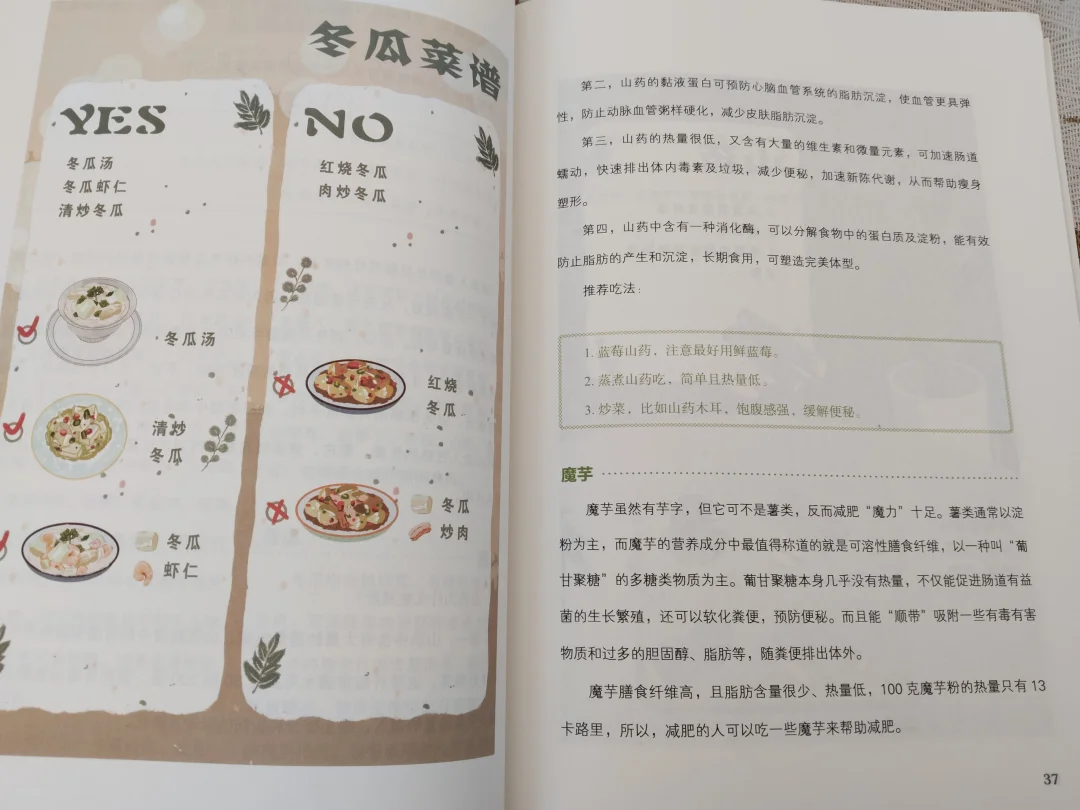 冬瓜菜谱
YES
冬瓜汤
冬瓜虾仁
清炒冬瓜
冬瓜汤
清炒
冬瓜
冬瓜
虾仁
NO
红烧冬瓜
肉炒冬瓜
红烧
冬瓜
冬瓜
炒肉
第二，山药的黏液蛋白可预防心脑血管系统的脂肪沉淀，使血管更具弹
性，防止动脉血管粥样硬化，减少皮肤脂肪沉淀。
第三，山药的热量很低，又含有大量的维生素和微量元素，可加速肠道
蠕动，快速排出体内毒素及垃圾，减少便秘，加速新陈代谢，从而帮助瘦身
塑形。
第四，山药中含有一种消化酶，可以分解食物中的蛋白质及淀粉，能有效
防止脂肪的产生和沉淀，长期食用，可塑造完美体型。
推荐吃法：
1. 蓝莓山药，注意最好用鲜蓝莓。
2. 蒸煮山药吃，简单且热量低。
3. 炒菜，比如山药木耳，饱腹感强，缓解便秘。
魔芋
魔芋虽然有芋字，但它可不是薯类，反而减肥“魔力”十足。薯类通常以淀
粉为主，而魔芋的营养成分中最值得称道的就是可溶性膳食纤维，以一种叫“葡
甘聚糖”的多糖类物质为主。葡甘聚糖本身几乎没有热量，不仅能促进肠道有益
菌的生长繁殖，还可以软化粪便，预防便秘。而且能“顺带”吸附一些有毒有害
物质和过多的胆固醇、脂肪等，随粪便排出体外。
魔芋膳食纤维高，且脂肪含量很少、热量低，100 克魔芋粉的热量只有 13
卡路里，所以，减肥的人可以吃一些魔芋来帮助减肥。
37